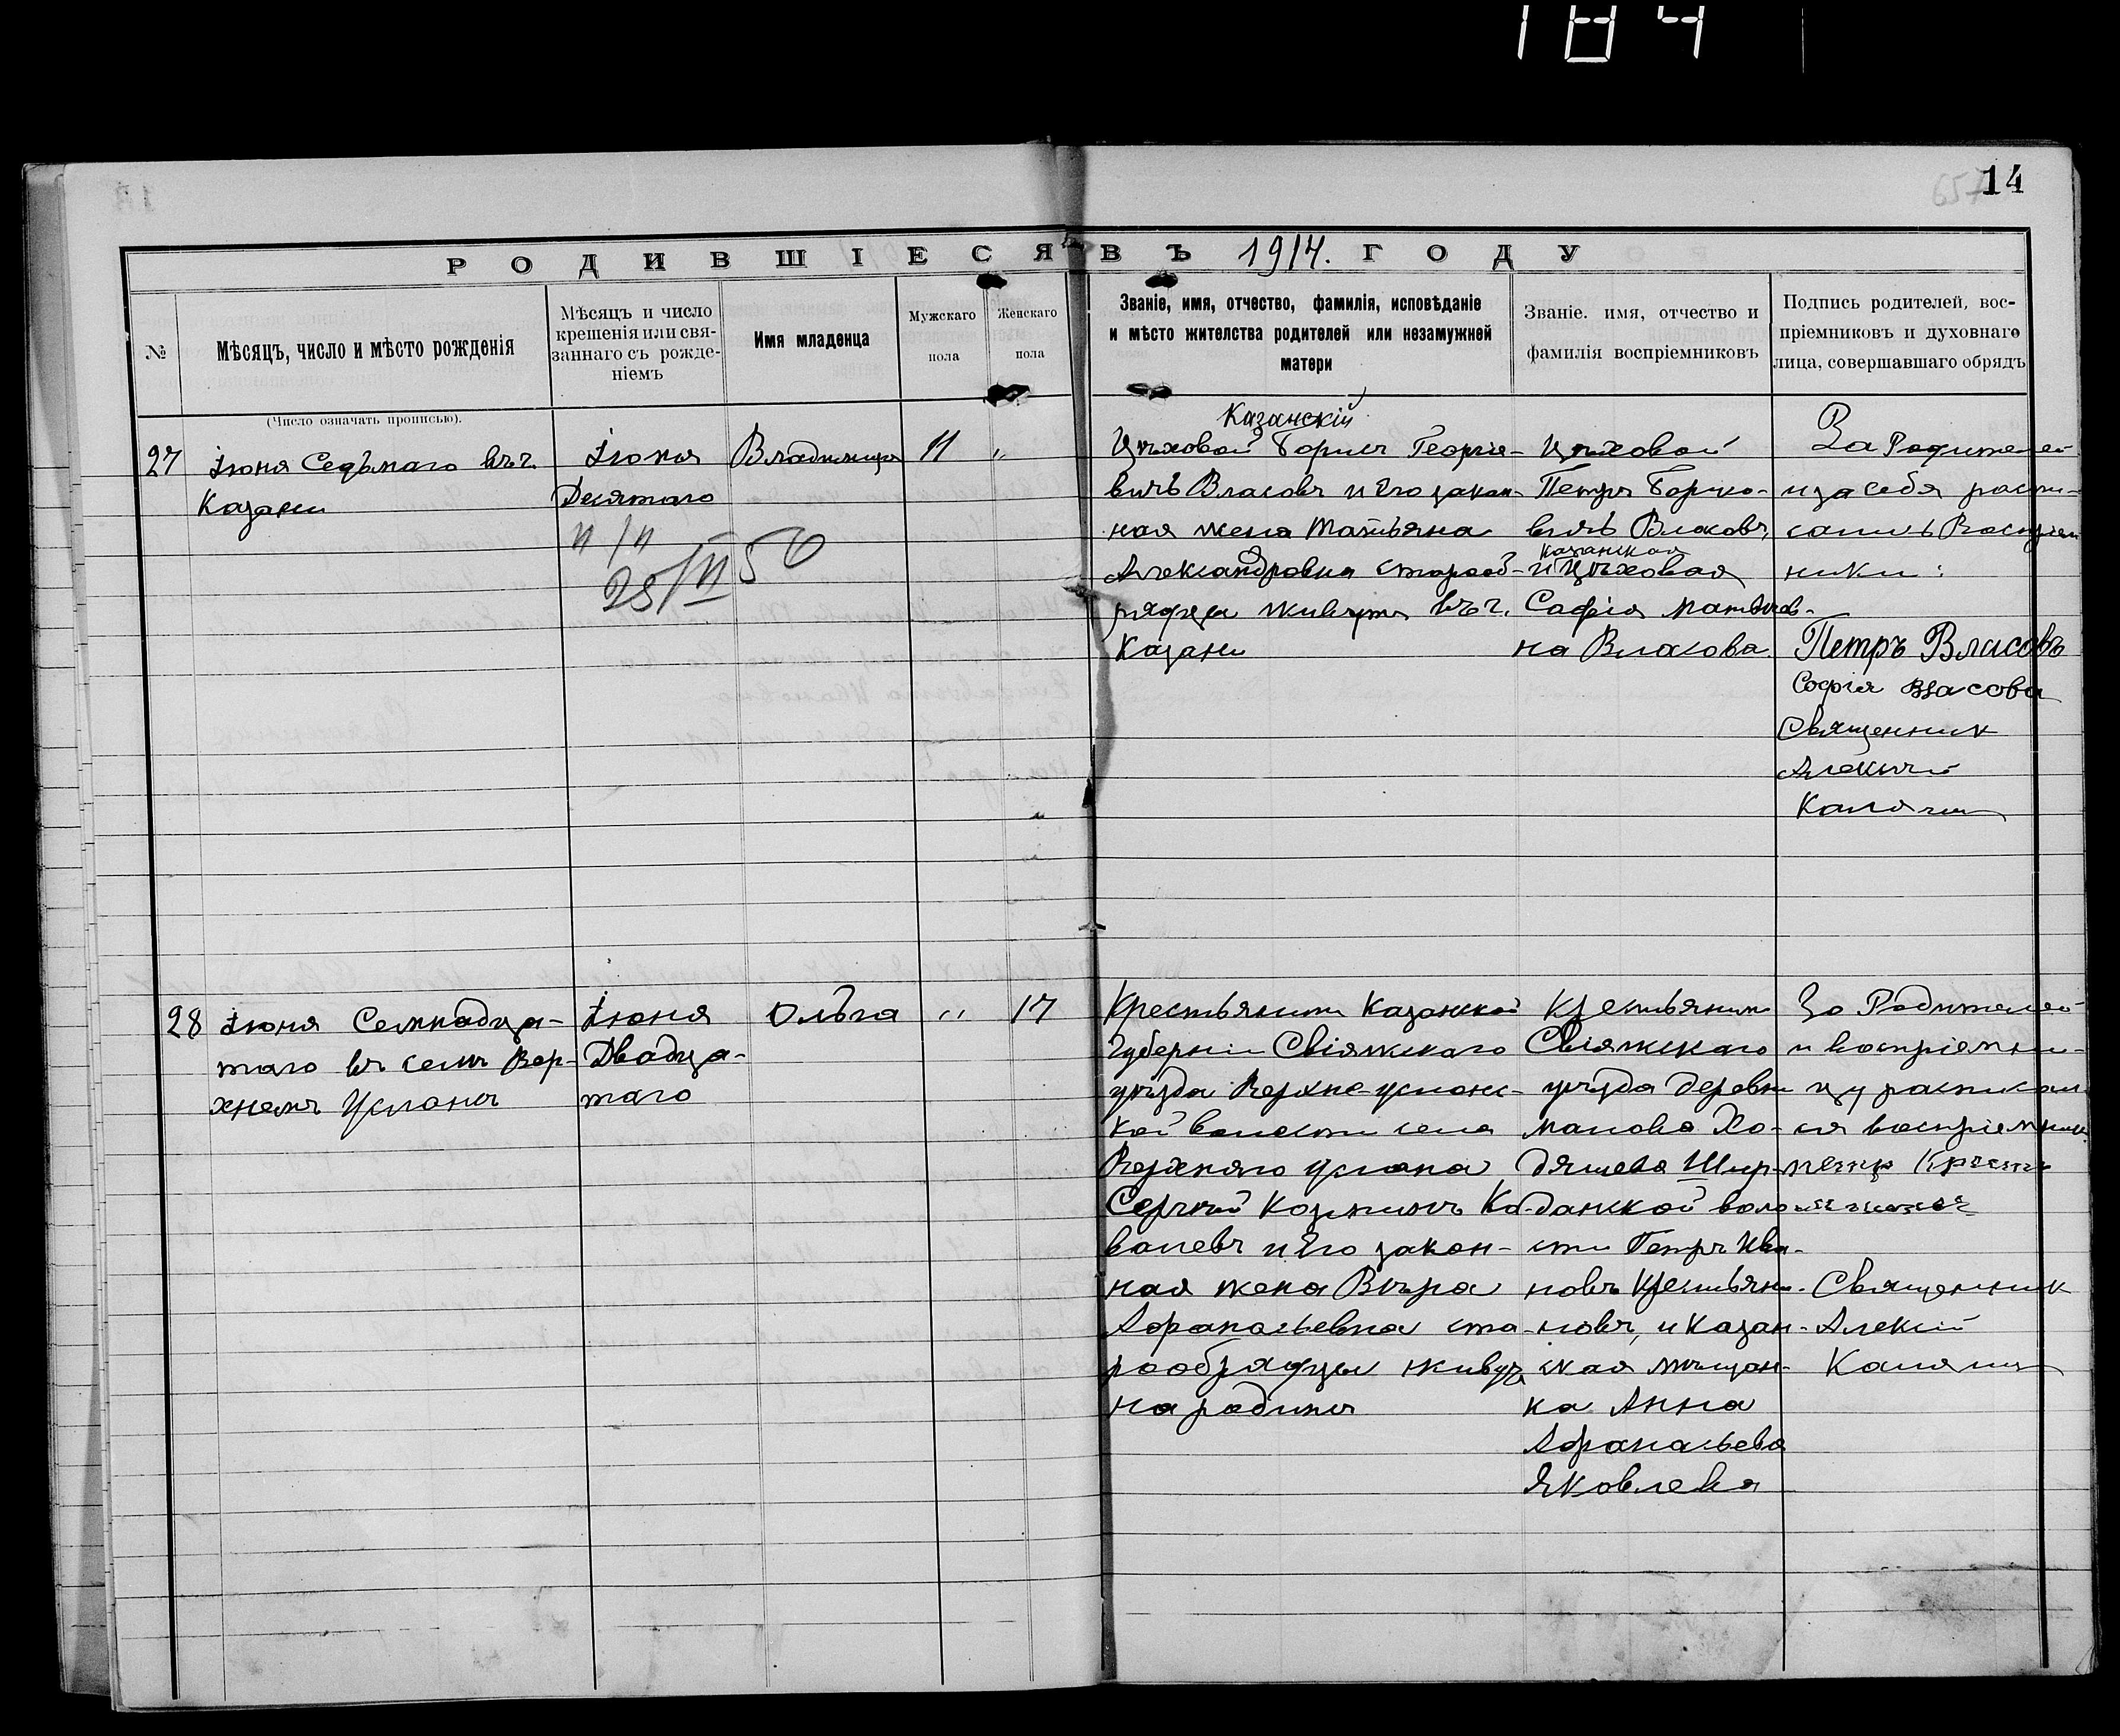 184
14
657
РОДИВШІЕСЯ ВЪ 1914. ГОДУ
№
Мѣсяцъ, число и мѣсто рожденія
Мѣсяцъ и число
крещенія или свя-
заннаго съ рожде-
ніемъ
Имя младенца
Мужскаго
пола
Женскаго
пола
Званіе, имя, отчество, фамилія, исповѣданіе
и мѣсто жителства родителей или незамужней
матери
Званіе. имя, отчество и
фамилія воспріемниковъ
Подпись родителей, вос-
пріемниковъ и духовнаго
лица, совершавшаго обрядъ
(Число означать прописью).
27
Іюня Седьмаго въ г.
Казани
Іюня
Десятаго
п/п
25/II 50
Владимиръ
11
"
Казанскій
Цѣховой Борисъ Георгіе-
вичъ Власовъ и Его закон-
ная жена Татьяна
Александровна старооб-
рядцы живутъ въ г.
Казани
Цѣховой
Петръ Борисо-
вичъ Власовъ,
казанская
и Цѣховая
Софія Матвѣев-
на Власова
За Родителей
и за себя распи-
сались Воспріем
ники:
Петръ Власовъ
Софія Власова
Священник
Алексѣй
Калягин
28
Іюня Семнадца-
таго въ селѣ Вер-
хнемъ Услонѣ
Іюня
Двадца-
таго
Ольга
"
17
Крестьянинъ Казанской
Губерніи Свіяжскаго
уѣзда Верхне-Услонс-
кой волости села
Верхняго Услона
Сергѣй Козминъ Ко-
валевъ и Его закон-
ная жена Вѣра
Афанасьевна ста-
рообрядцы живут
на родинѣ
Крестьянин
Свіяжскаго
уѣзда деревни
Малова Хо-
дяшева Шир-
данской воло
сти Петръ Ива-
новъ Крестьяни-
новъ, и Казан-
ская мѣщан-
ка Анна
Афанасьева
Яковлева
За Родителей
и воспріемни-
цу расписал
ся воспріемник
Священник
Алексій
Калягин